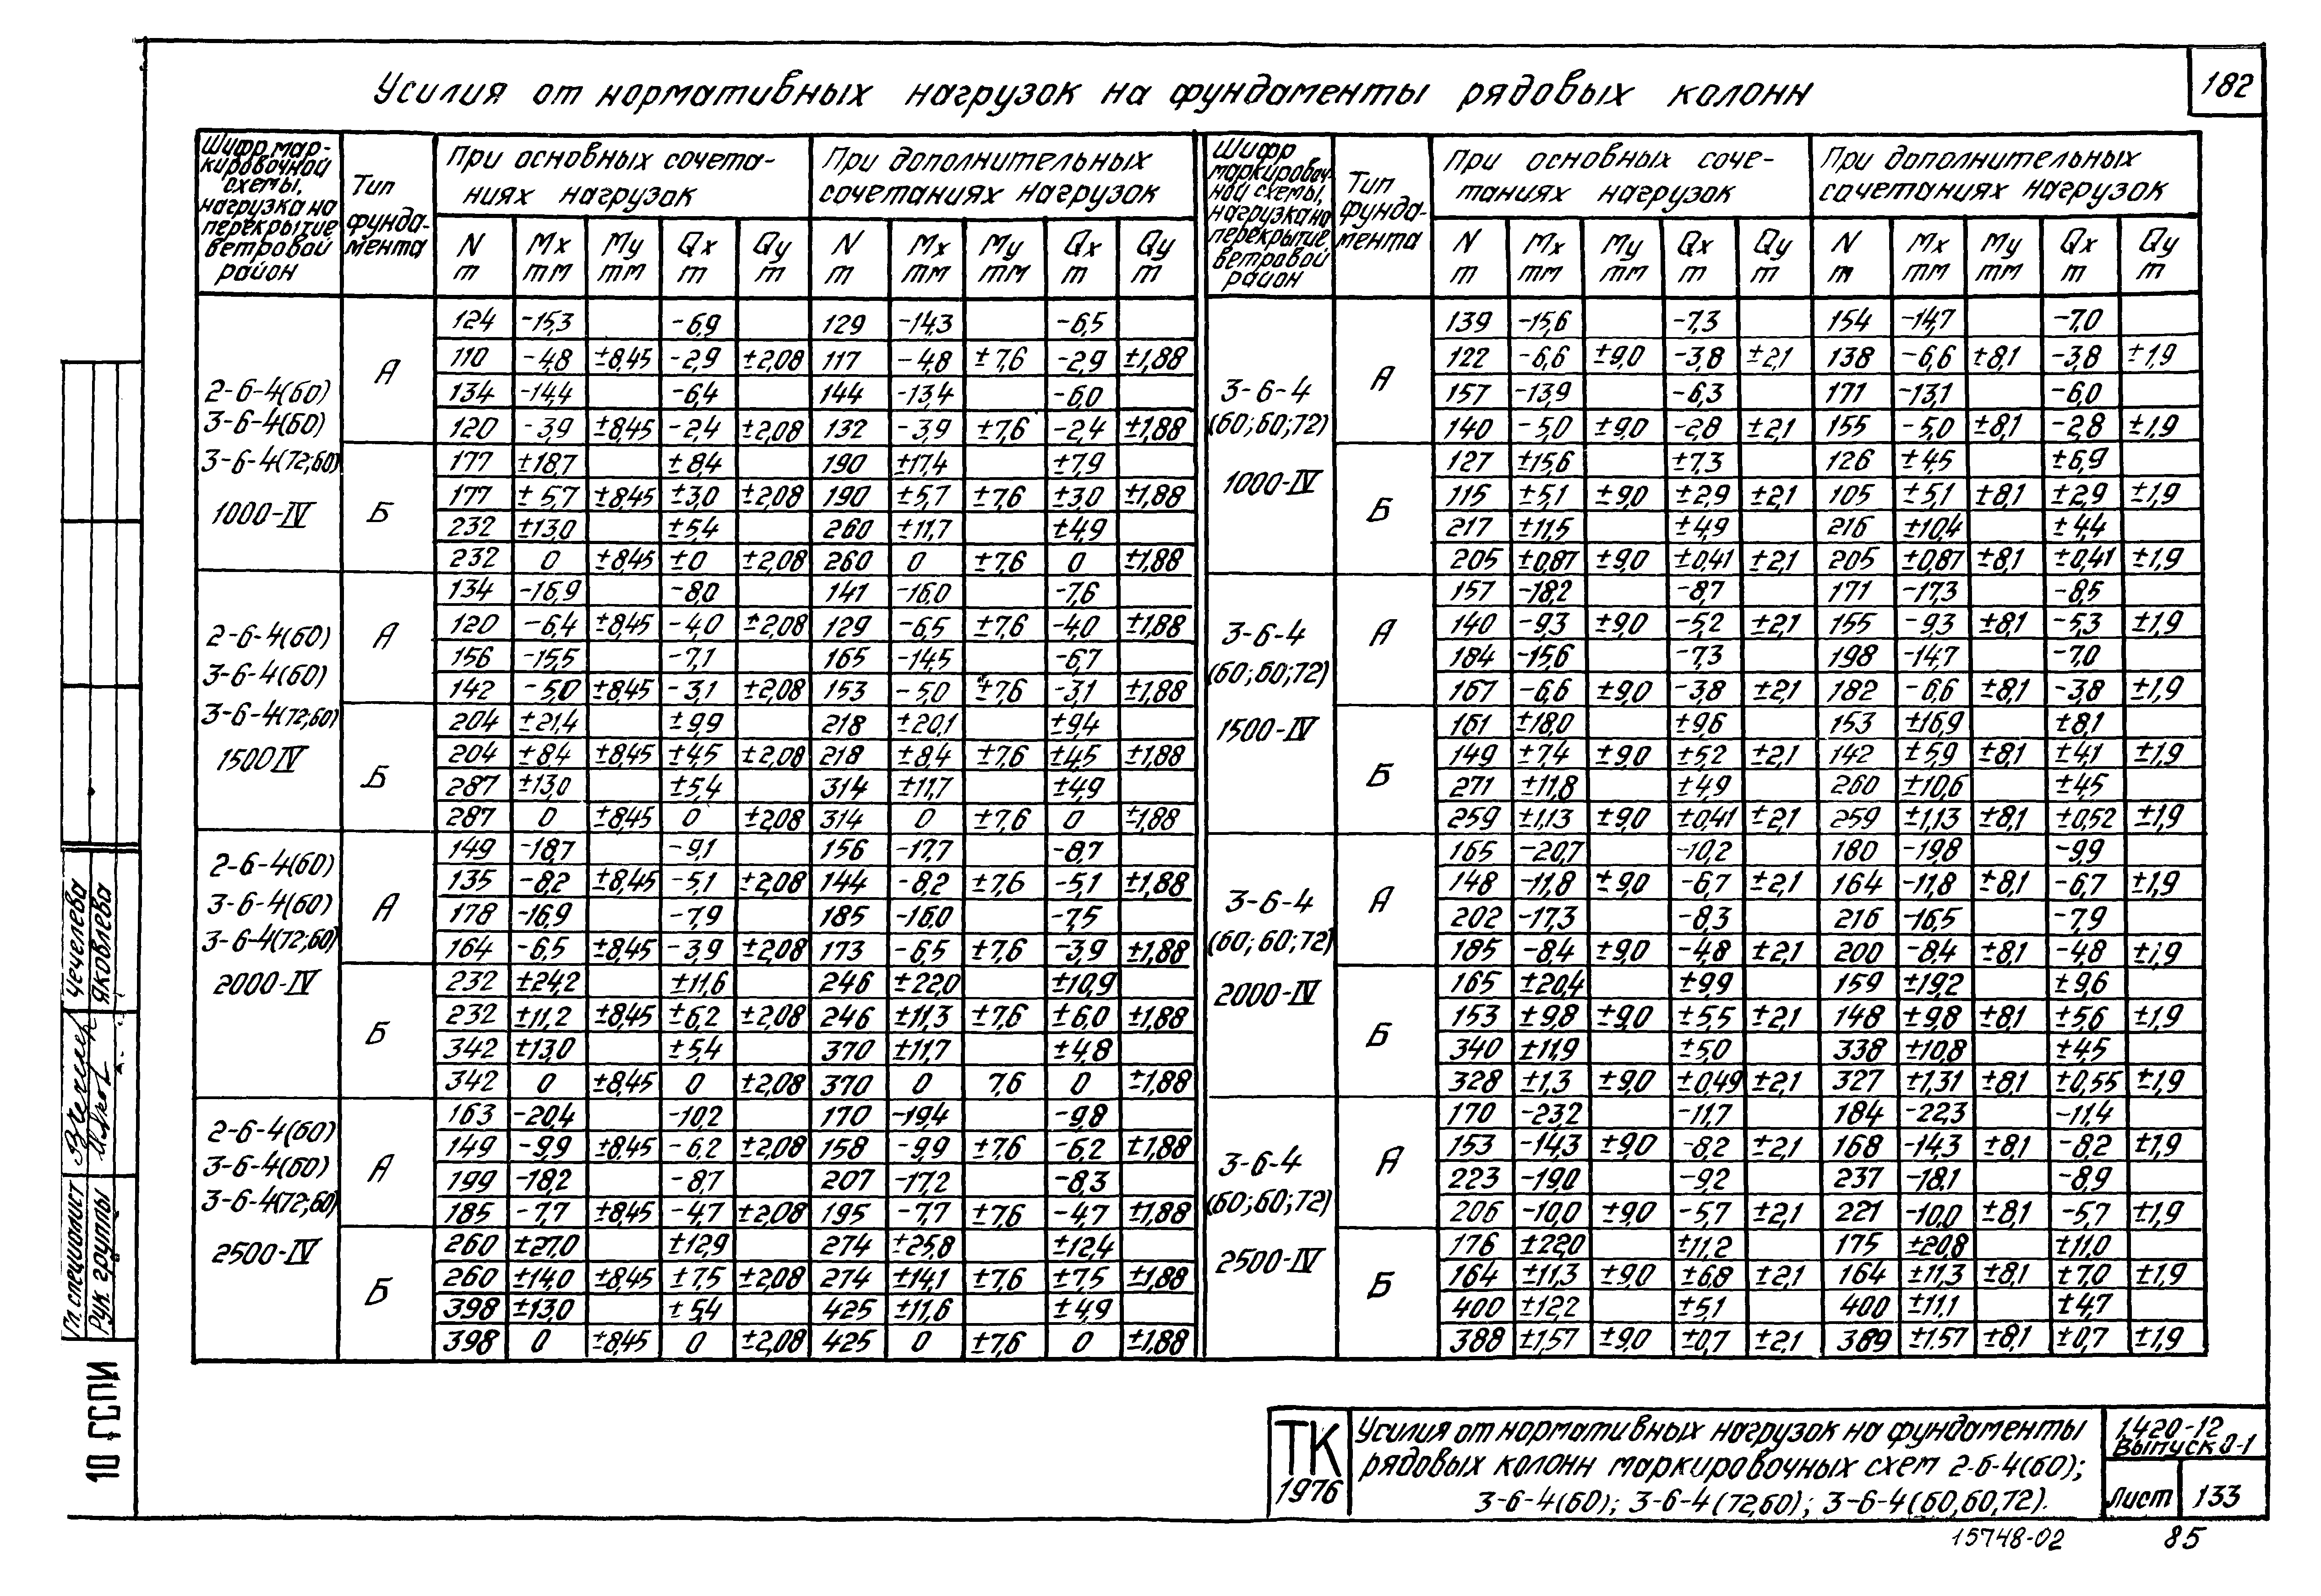 182
Усилия от нормативных нагрузок на фундаменты рядовых колонн
Шифр мар-
кировочной
схемы,
нагрузка на
перекрытие
ветровой
район
Тип
фунда-
мента
При основных сочета-
ниях нагрузок
При дополнительных
сочетаниях нагрузок
N т Mx тм My тм Qx т Qy т N т Mx тм My тм Qx т Qy т
2-6-4(60)
3-6-4(60)
3-6-4(72;60)
1000-IV
А
124 -15,3 -6,9 129 -14,3 -6,5
110 -4,8 ±8,45 -2,9 ±2,08 117 -4,8 ±7,6 -2,9 ±1,88
134 -14,4 -6,4 144 -13,4 -6,0
120 -3,9 ±8,45 -2,4 ±2,08 132 -3,9 ±7,6 -2,4 ±1,88
Б
177 ±18,7 ±8,4 190 ±17,4 ±7,9
177 ±5,7 ±8,45 ±3,0 ±2,08 190 ±5,7 ±7,6 ±3,0 ±1,88
232 ±13,0 ±5,4 260 ±11,7 ±4,9
232 0 ±8,45 ±0 ±2,08 260 0 ±7,6 0 ±1,88
2-6-4(60)
3-6-4(60)
3-6-4(72;60)
1500 IV
А
134 -16,9 -8,0 141 -16,0 -7,6
120 -6,4 ±8,45 -4,0 ±2,08 129 -6,5 ±7,6 -4,0 ±1,88
156 -15,5 -7,1 165 -14,5 -6,7
142 -5,0 ±8,45 -3,1 ±2,08 153 -5,0 ±7,6 -3,1 ±1,88
Б
204 ±21,4 ±9,9 218 ±20,1 ±9,4
204 ±8,4 ±8,45 ±4,5 ±2,08 218 ±8,4 ±7,6 ±4,5 ±1,88
287 ±13,0 ±5,4 314 ±11,7 ±4,9
287 0 ±8,45 0 ±2,08 314 0 ±7,6 0 ±1,88
2-6-4(60)
3-6-4(60)
3-6-4(72;60)
2000-IV
А
149 -18,7 -9,1 156 -17,7 -8,7
135 -8,2 ±8,45 -5,1 ±2,08 144 -8,2 ±7,6 -5,1 ±1,88
178 -16,9 -7,9 185 -16,0 -7,5
164 -6,5 ±8,45 -3,9 ±2,08 173 -6,5 ±7,6 -3,9 ±1,88
Б
232 ±24,2 ±11,6 246 ±22,0 ±10,9
232 ±11,2 ±8,45 ±6,2 ±2,08 246 ±11,3 ±7,6 ±6,0 ±1,88
342 ±13,0 ±5,4 370 ±11,7 ±4,8
342 0 ±8,45 0 ±2,08 370 0 7,6 0 ±1,88
2-6-4(60)
3-6-4(60)
3-6-4(72;60)
2500-IV
А
163 -20,4 -10,2 170 -19,4 -9,8
149 -9,9 ±8,45 -6,2 ±2,08 158 -9,9 ±7,6 -6,2 ±1,88
199 -18,2 -8,7 207 -17,2 -8,3
185 -7,7 ±8,45 -4,7 ±2,08 195 -7,7 ±7,6 -4,7 ±1,88
Б
260 ±27,0 ±12,9 274 ±25,8 ±12,4
260 ±14,0 ±8,45 ±7,5 ±2,08 274 ±14,1 ±7,6 ±7,5 ±1,88
398 ±13,0 ±5,4 425 ±11,6 ±4,9
398 0 ±8,45 0 ±2,08 425 0 ±7,6 0 ±1,88
Шифр
маркировоч-
ной схемы,
нагрузка на
перекрытие,
ветровой
район
Тип
фунда-
мента
При основных соче-
таниях нагрузок
При дополнительных
сочетаниях нагрузок
N т Mx тм My тм Qx т Qy т N т Mx тм My тм Qx т Qy т
3-6-4
(60;60;72)
1000-IV
А
139 -15,6 -7,3 154 -14,7 -7,0
122 -6,6 ±9,0 -3,8 ±2,1 138 -6,6 ±8,1 -3,8 ±1,9
157 -13,9 -6,3 171 -13,1 -6,0
140 -5,0 ±9,0 -2,8 ±2,1 155 -5,0 ±8,1 -2,8 ±1,9
Б
127 ±15,6 ±7,3 126 ±4,5 ±6,9
115 ±5,1 ±9,0 ±2,9 ±2,1 105 ±5,1 ±8,1 ±2,9 ±1,9
217 ±11,5 ±4,9 216 ±10,4 ±4,4
205 ±0,87 ±9,0 ±0,41 ±2,1 205 ±0,87 ±8,1 ±0,41 ±1,9
3-6-4
(60;60;72)
1500-IV
А
157 -18,2 -8,7 171 -17,3 -8,5
140 -9,3 ±9,0 -5,2 ±2,1 155 -9,3 ±8,1 -5,3 ±1,9
184 -15,6 -7,3 198 -14,7 -7,0
167 -6,6 ±9,0 -3,8 ±2,1 182 -6,6 ±8,1 -3,8 ±1,9
Б
161 ±18,0 ±9,6 153 ±16,9 ±8,1
149 ±7,4 ±9,0 ±5,2 ±2,1 142 ±5,9 ±8,1 ±4,1 ±1,9
271 ±11,8 ±4,9 260 ±10,6 ±4,5
259 ±1,13 ±9,0 ±0,41 ±2,1 259 ±1,13 ±8,1 ±0,52 ±1,9
3-6-4
(60;60;72)
2000-IV
А
165 -20,7 -10,2 180 -19,8 -9,9
148 -11,8 ±9,0 -6,7 ±2,1 164 -11,8 ±8,1 -6,7 ±1,9
202 -17,3 -8,3 216 -16,5 -7,9
185 -8,4 ±9,0 -4,8 ±2,1 200 -8,4 ±8,1 -4,8 ±1,9
Б
165 ±20,4 ±9,9 159 ±19,2 ±9,6
153 ±9,8 ±9,0 ±5,5 ±2,1 148 ±9,8 ±8,1 ±5,6 ±1,9
340 ±11,9 ±5,0 338 ±10,8 ±4,5
328 ±1,3 ±9,0 ±0,49 ±2,1 327 ±1,31 ±8,1 ±0,55 ±1,9
3-6-4
(60;60;72)
2500-IV
А
170 -23,2 -11,7 184 -22,3 -11,4
153 -14,3 ±9,0 -8,2 ±2,1 168 -14,3 ±8,1 -8,2 ±1,9
223 -19,0 -9,2 237 -18,1 -8,9
206 -10,0 ±9,0 -5,7 ±2,1 221 -10,0 ±8,1 -5,7 ±1,9
Б
176 ±22,0 ±11,2 175 ±20,8 ±11,0
164 ±11,3 ±9,0 ±6,8 ±2,1 164 ±11,3 ±8,1 ±7,0 ±1,9
400 ±12,2 ±5,1 400 ±11,1 ±4,7
388 ±1,57 ±9,0 ±0,7 ±2,1 389 ±1,57 ±8,1 ±0,7 ±1,9
Гл. специалист Чечелева
Рук. группы Яковлева
10 ГСПИ
ТК
1976
Усилия от нормативных нагрузок на фундаменты
рядовых колонн маркировочных схем 2-6-4(60);
3-6-4(60); 3-6-4(72,60); 3-6-4(60,60,72).
1.420-12
Выпуск 0-1
Лист 133
15748-02 85